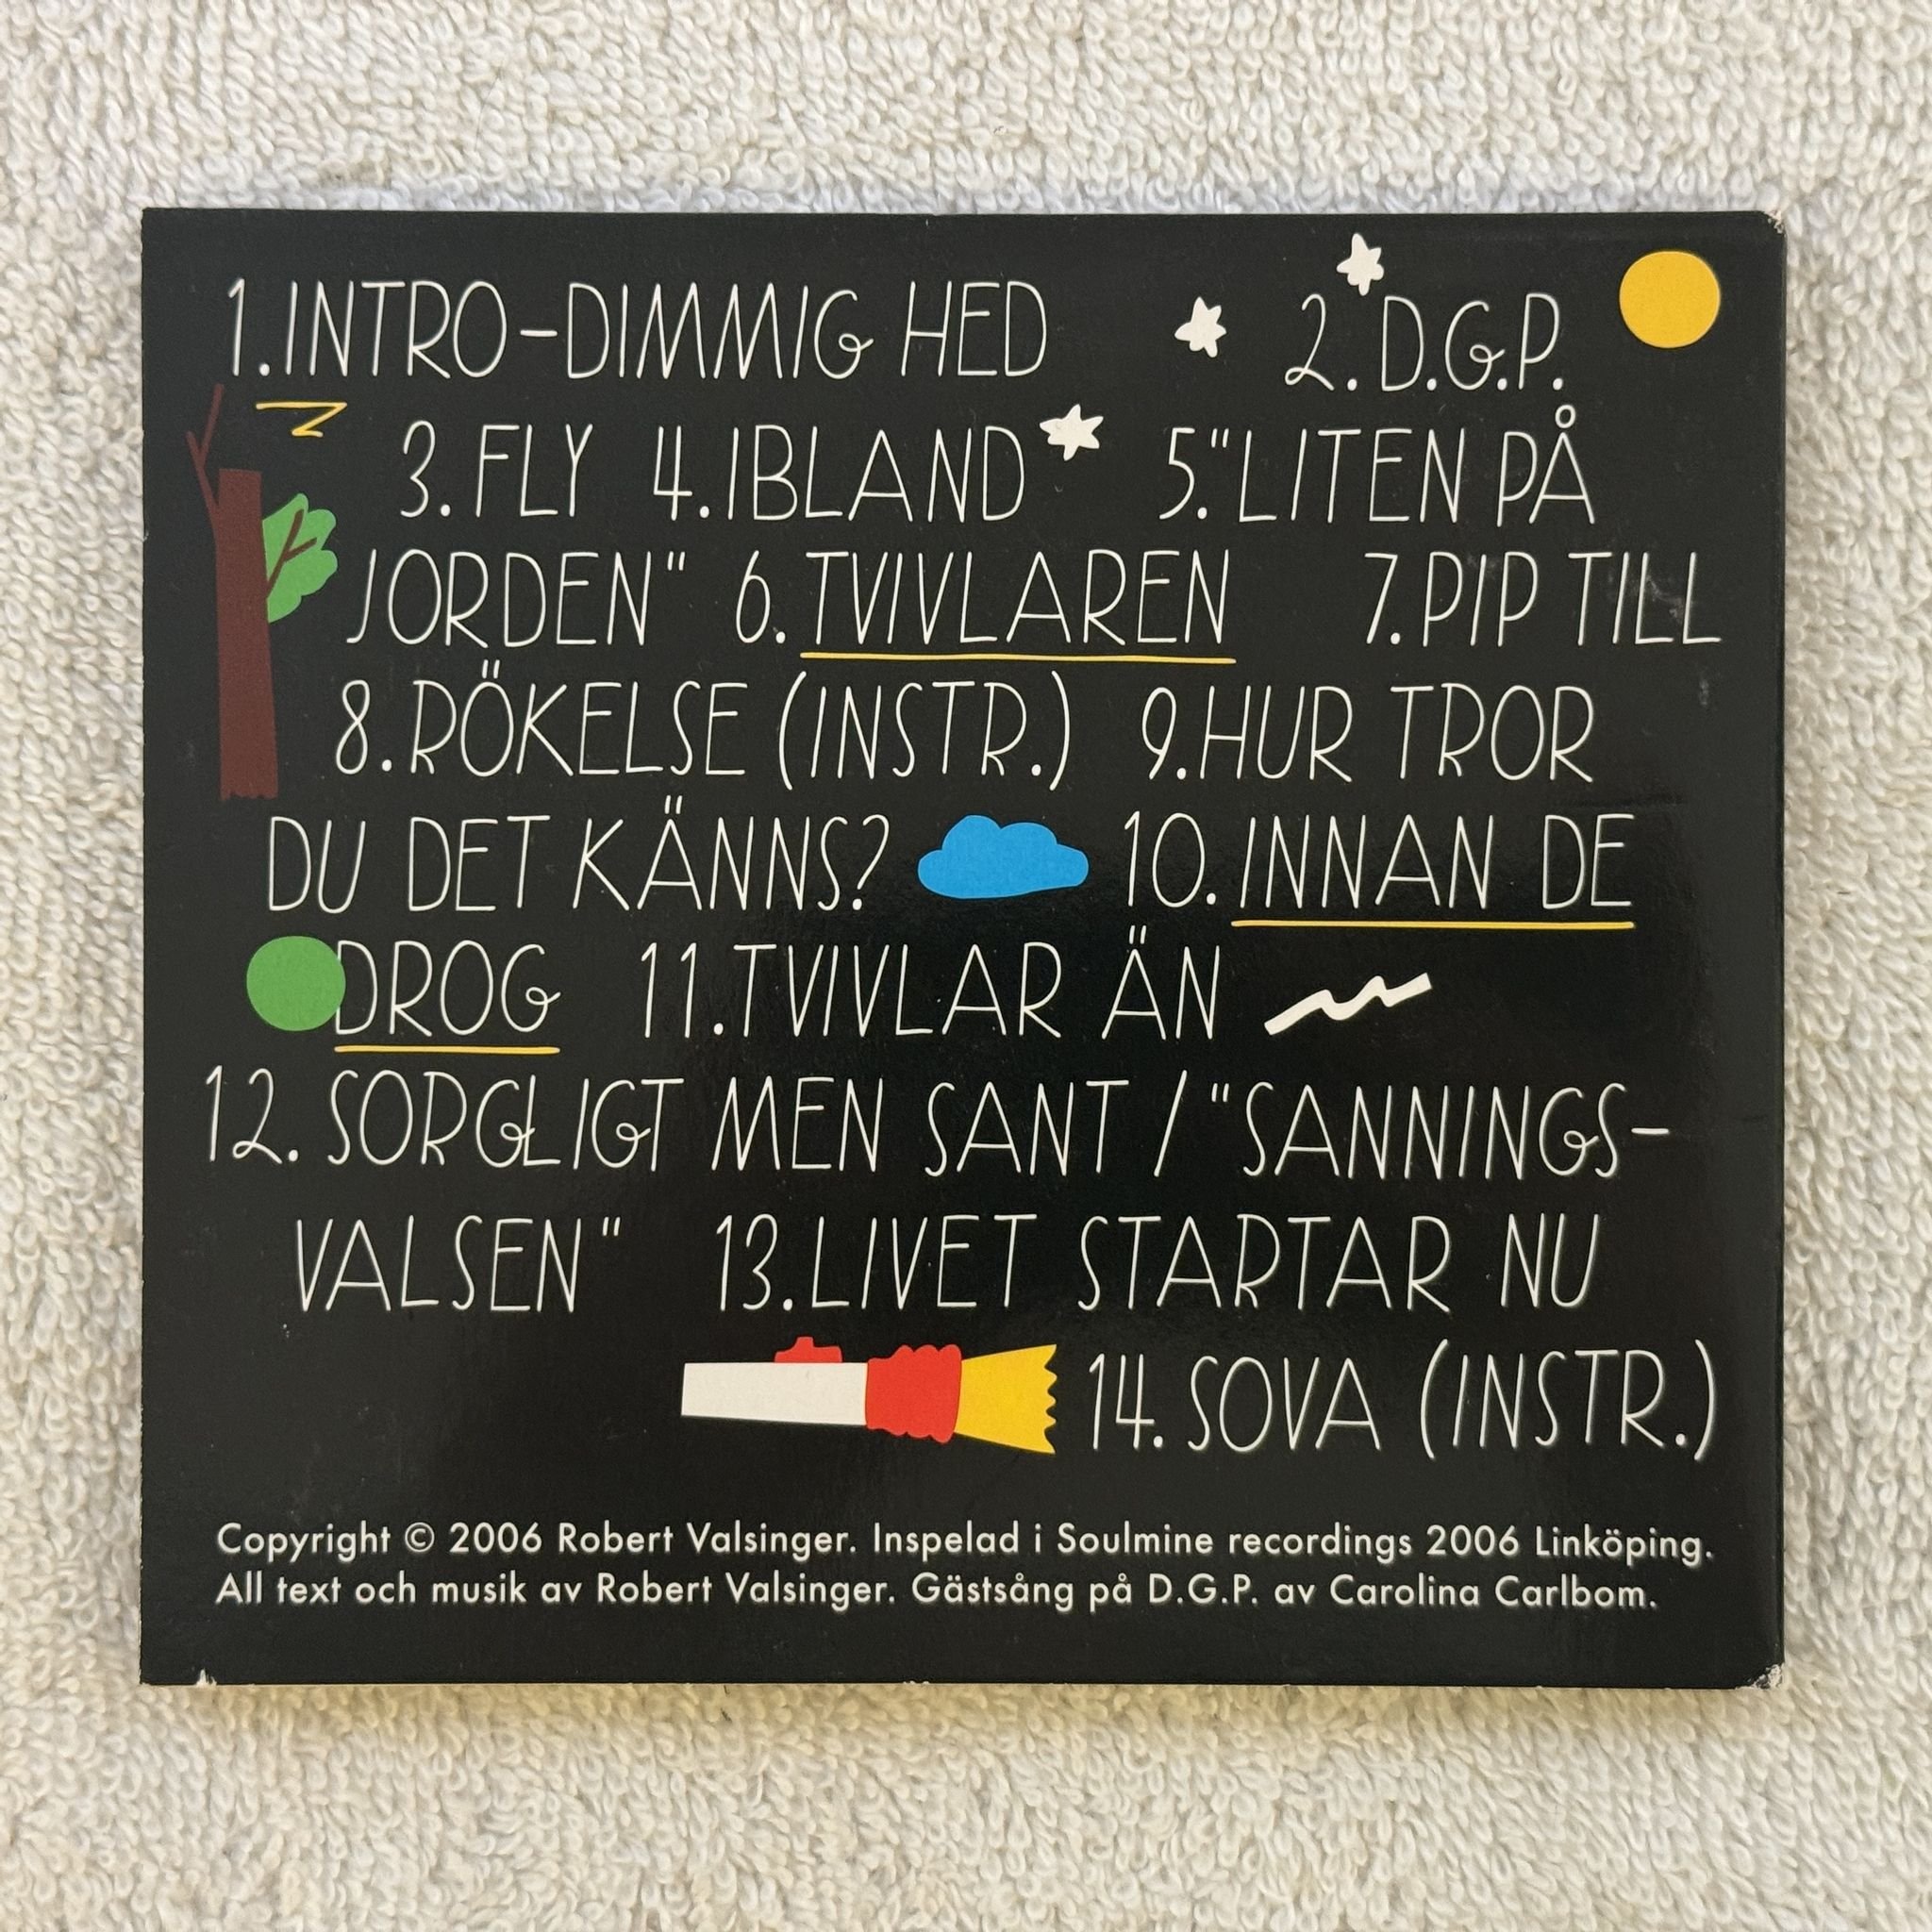 1. INTRO-DIMMIG HED 2. D.G.P.
3. FLY 4. IBLAND 5. "LITEN PÅ
JORDEN" 6. TVIVLAREN 7. PIP TILL
8. RÖKELSE (INSTR.) 9. HUR TROR
DU DET KÄNNS? 10. INNAN DE
DROG 11. TVIVLAR ÄN
12. SORGLIGT MEN SANT / "SANNINGS-
VALSEN" 13. LIVET STARTAR NU
14. SOVA (INSTR.)
Copyright © 2006 Robert Valsinger. Inspelad i Soulmine recordings 2006 Linköping.
All text och musik av Robert Valsinger. Gästsång på D.G.P. av Carolina Carlbom.